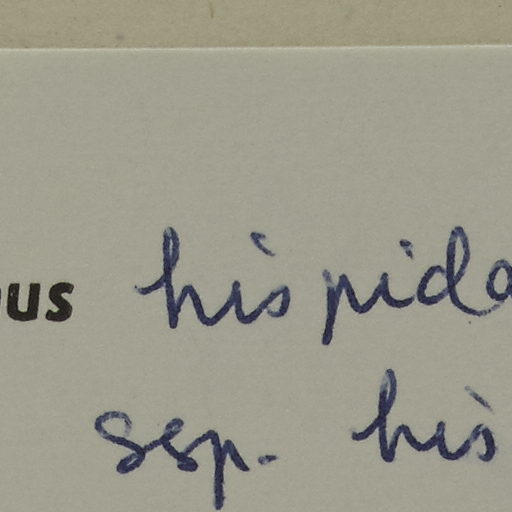 us hispida
ssp. his